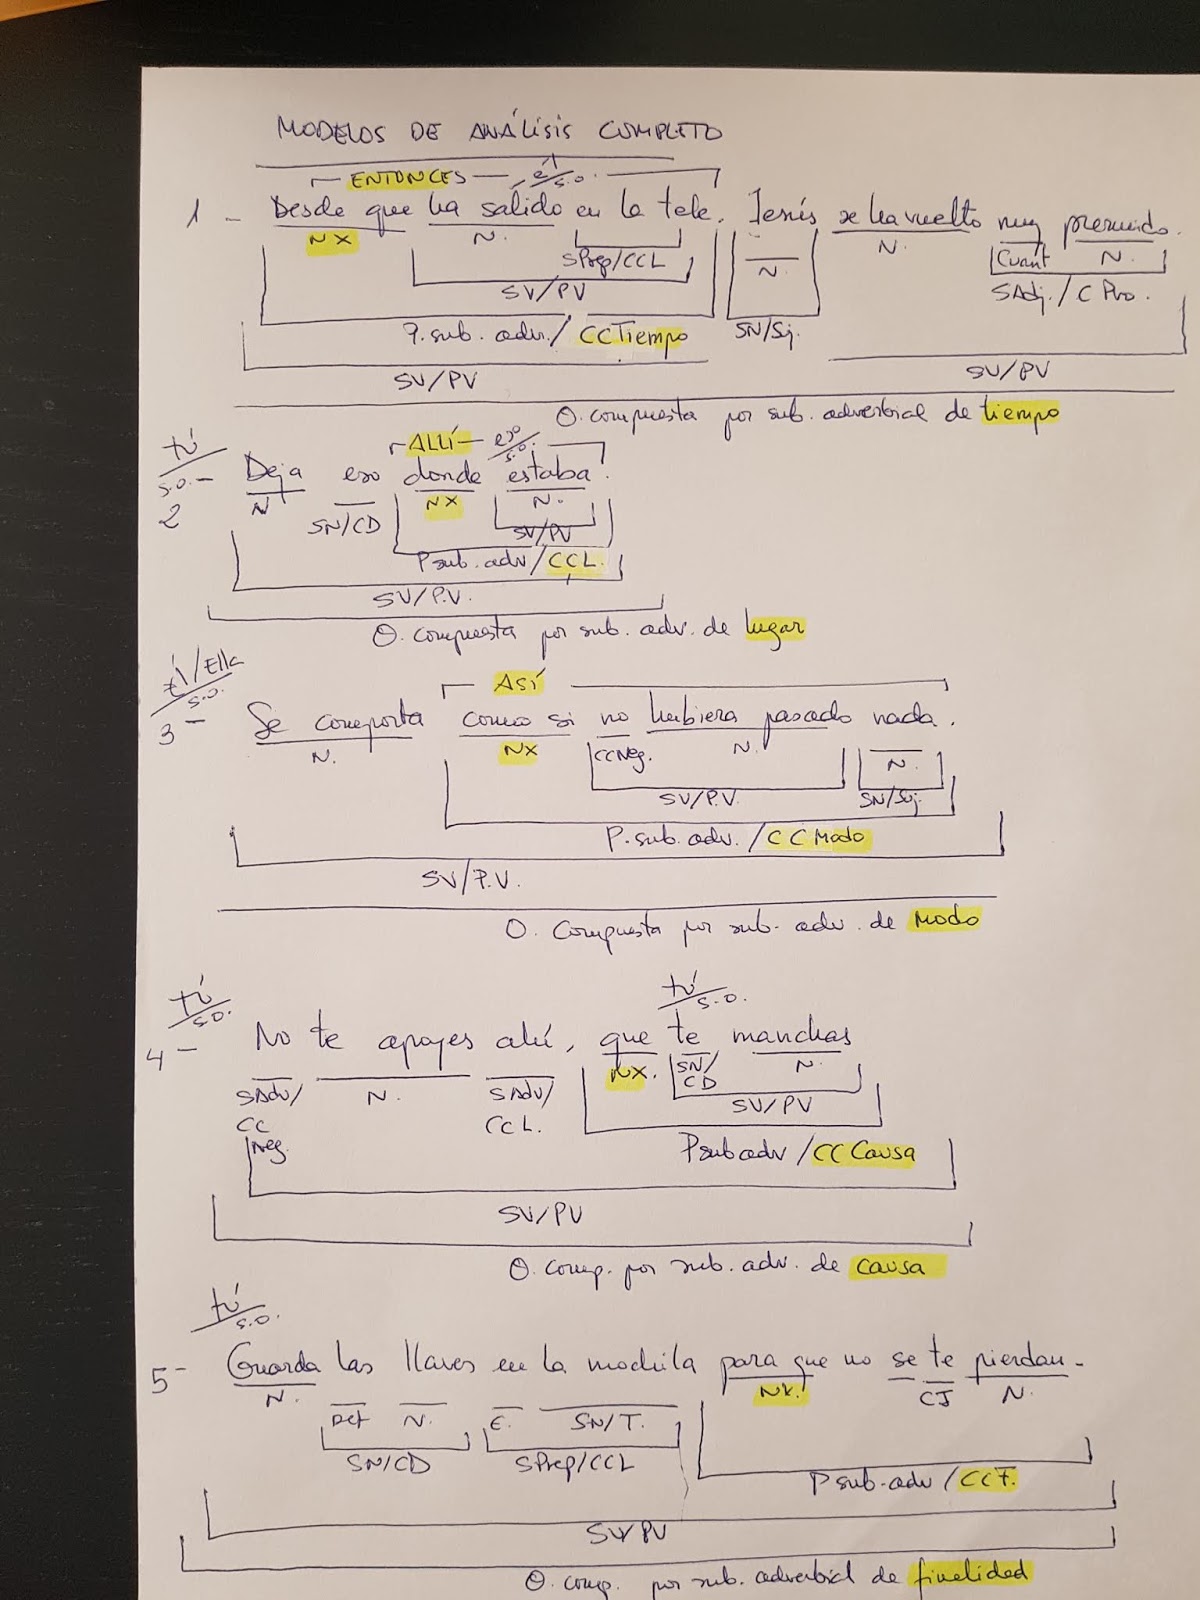 MODELOS DE ANÁLISIS COMPLETO
ENTONCES él
S.O.
1 - Desde que ha salido en la tele, Jesús se ha vuelto muy presumido.
NX N. N. N. Cuant N.
SPrep/CCL
SV/PV SAdj./C Pvo.
P. sub. adv./ CCTiempo SN/Sj.
SV/PV SV/PV
O. compuesta por sub. adverbial de tiempo
tú
S.O.
ALLÍ eso
S.O.
2 - Deja eso donde estaba.
N SN/CD NX N.
SV/PV
P sub. adv/CCL.
SV/P.V.
O. compuesta por sub. adv. de lugar
él/Ella
S.O.
Así
3 - Se comporta como si no hubiera pasado nada.
N. NX CCNeg. N. N.
SV/P.V. SN/Suj.
P. sub. adv./CC Modo
SV/P.V.
O. Compuesta por sub. adv. de Modo
tú
S.O.
tú
S.O.
4 - No te apoyes ahí, que te manchas
SAdv/ N. SAdv/ NX. SN/ N.
CC CCL. CD
Neg. SV/PV
P sub adv /CC Causa
SV/PV
O. comp. por sub. adv. de causa
tú
S.O.
5 - Guarda las llaves en la mochila para que no se te pierdan.
N. Det N. E. SN/T. NX. CI N.
SN/CD SPrep/CCL
P sub. adv /CCF.
SV/PV
O. comp. por sub. adverbial de finalidad